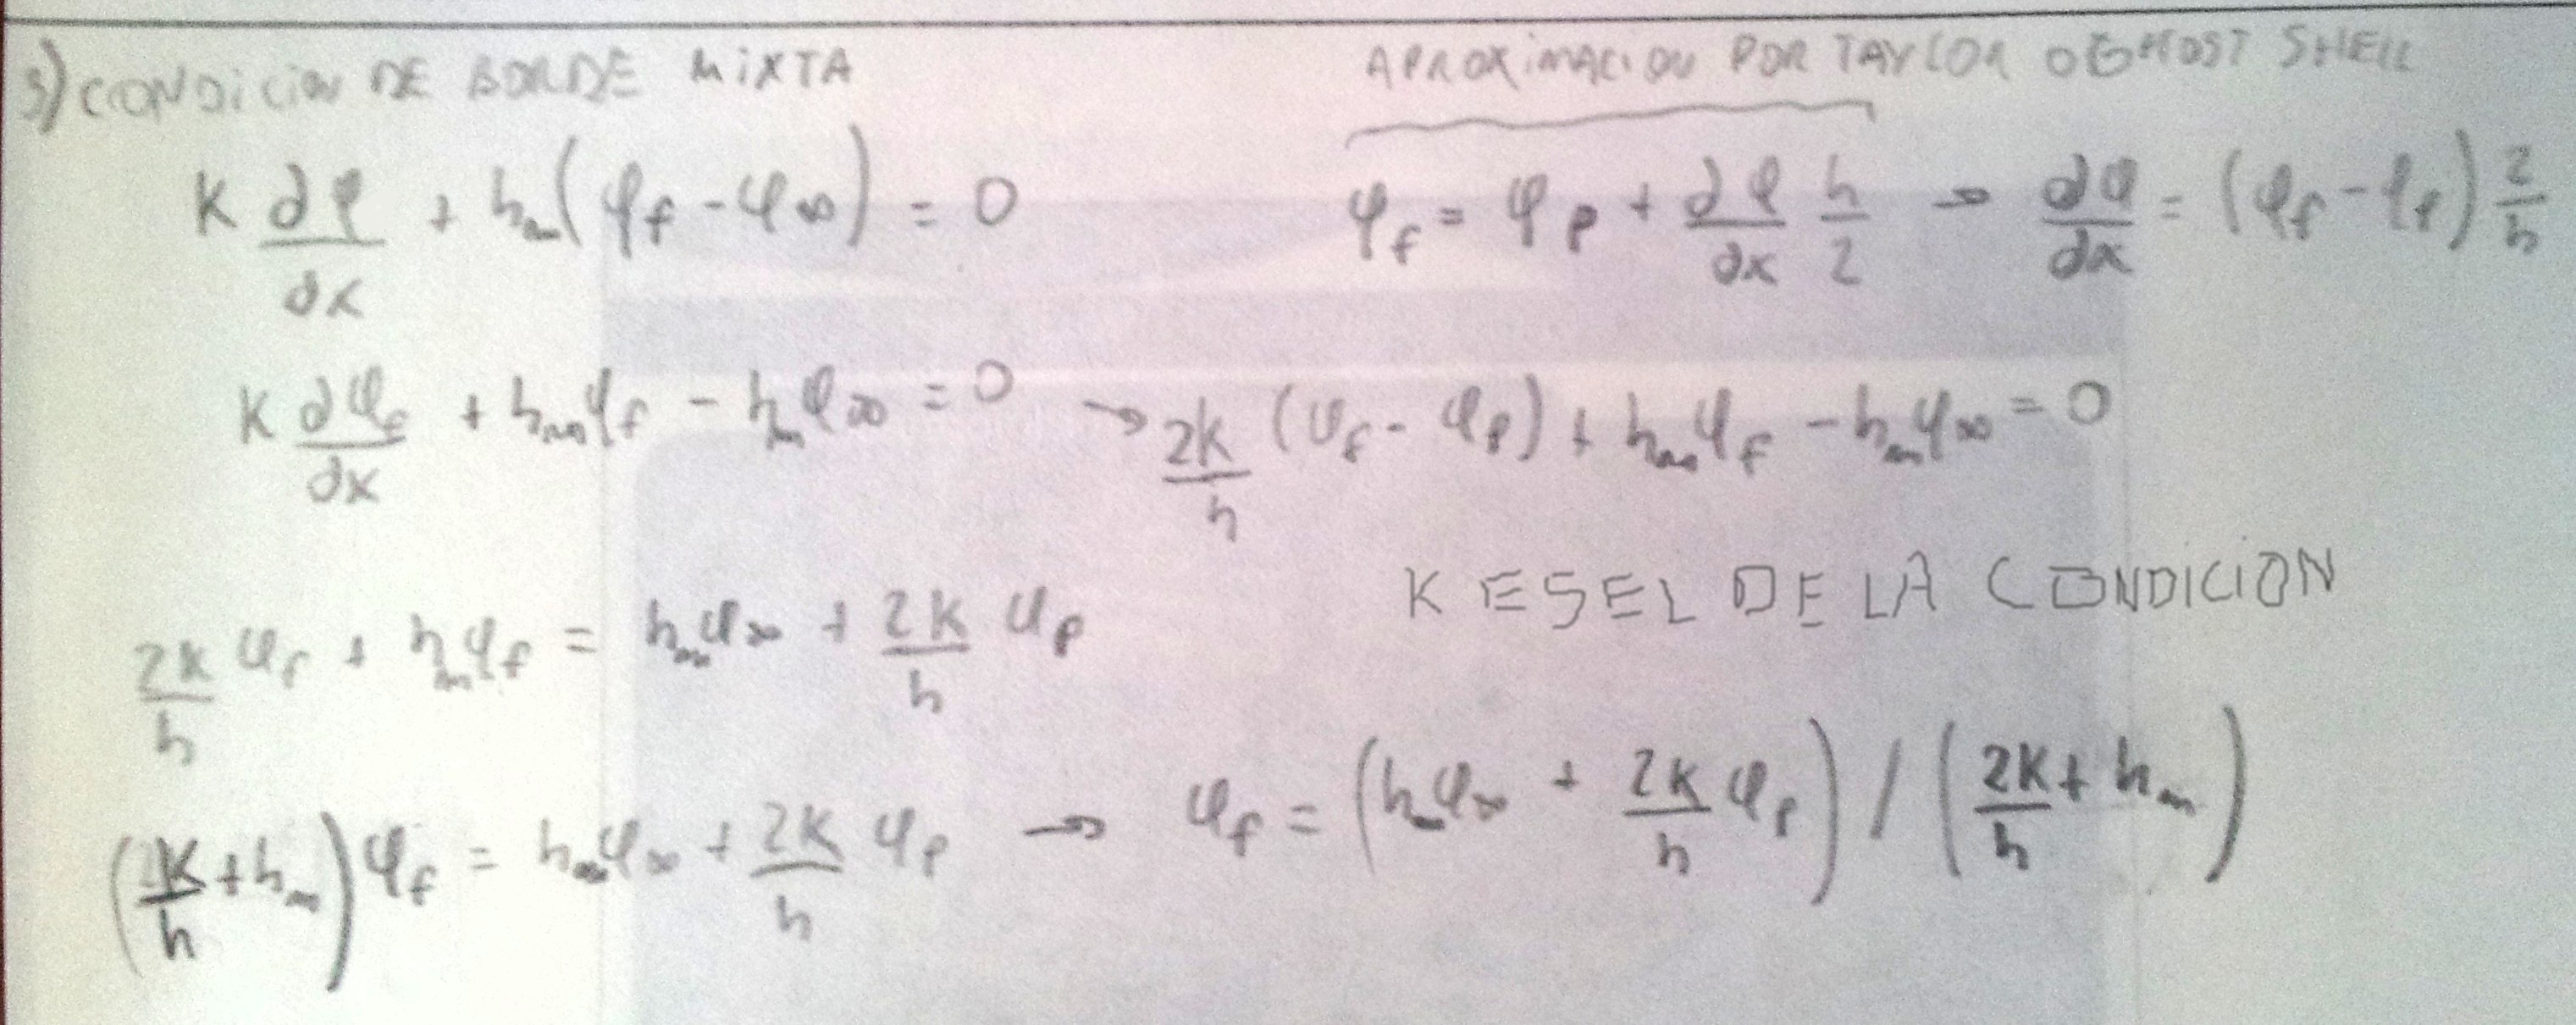 3) CONDICION DE BORDE MIXTA
APROXIMACION POR TAYLOR O GHOST SHELL
K ∂φ/∂x + hₘ(φf - φ∞) = 0
φf = φP + ∂φ/∂x h/2 → ∂φ/∂x = (φf - φP) 2/h
K ∂φf/∂x + hₘφf - hₘφ∞ = 0 → 2K/h (φf - φP) + hₘφf - hₘφ∞ = 0
K ES EL DE LA CONDICION
2K/h φf + hₘφf = hₘφ∞ + 2K/h φP
(2K/h + hₘ)φf = hₘφ∞ + 2K/h φP → φf = (hₘφ∞ + 2K/h φP) / (2K/h + hₘ)